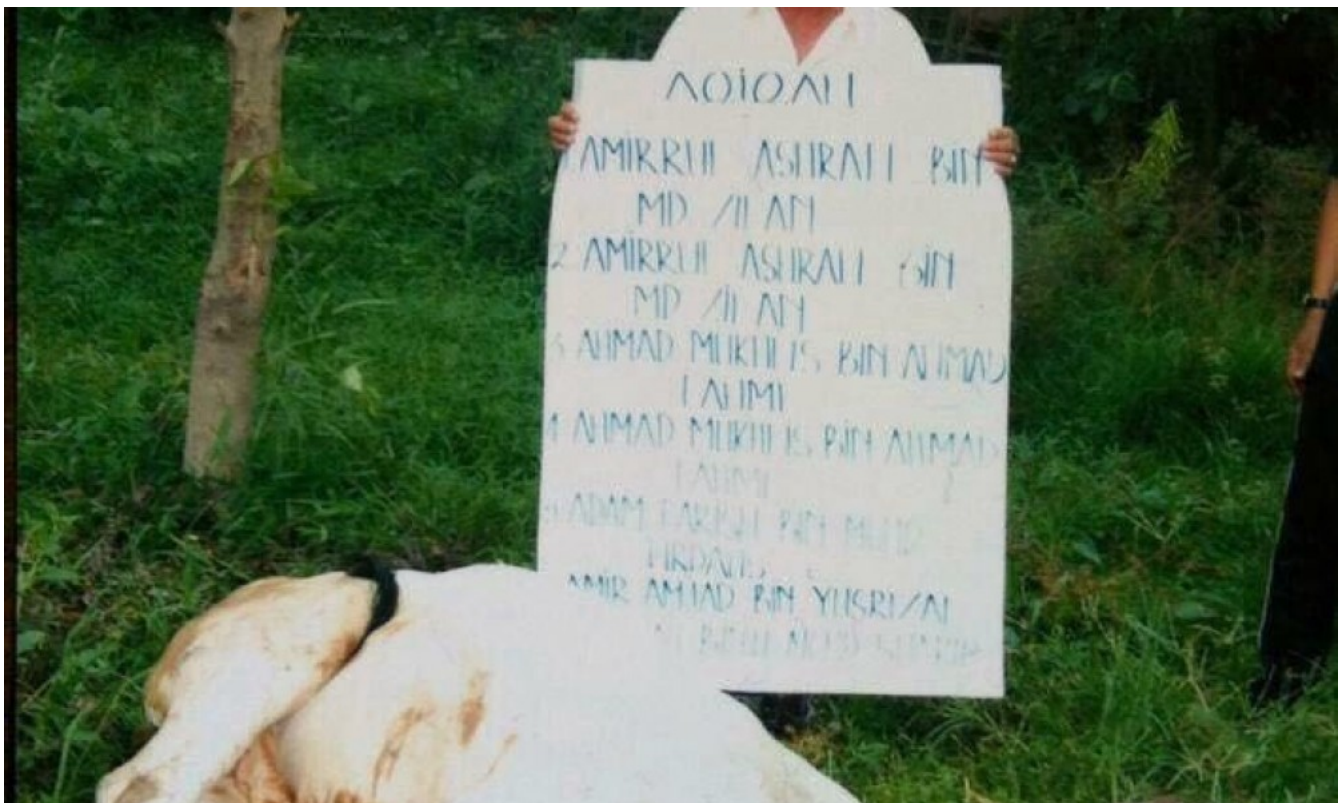 AQIQAH
AMIRRUL ASHRAFF BIN
MD
2 AMIRRUL ASHRAFF BIN
MD
AHMAD MUKHLIS BIN AHMAD
FAHMI
4 AHMAD MUKHLIS BIN AHMAD
FAHMI
ADAM FARISH BIN MUHD
FIRDAUS
AMIR AMJAD BIN YUSRIZAL